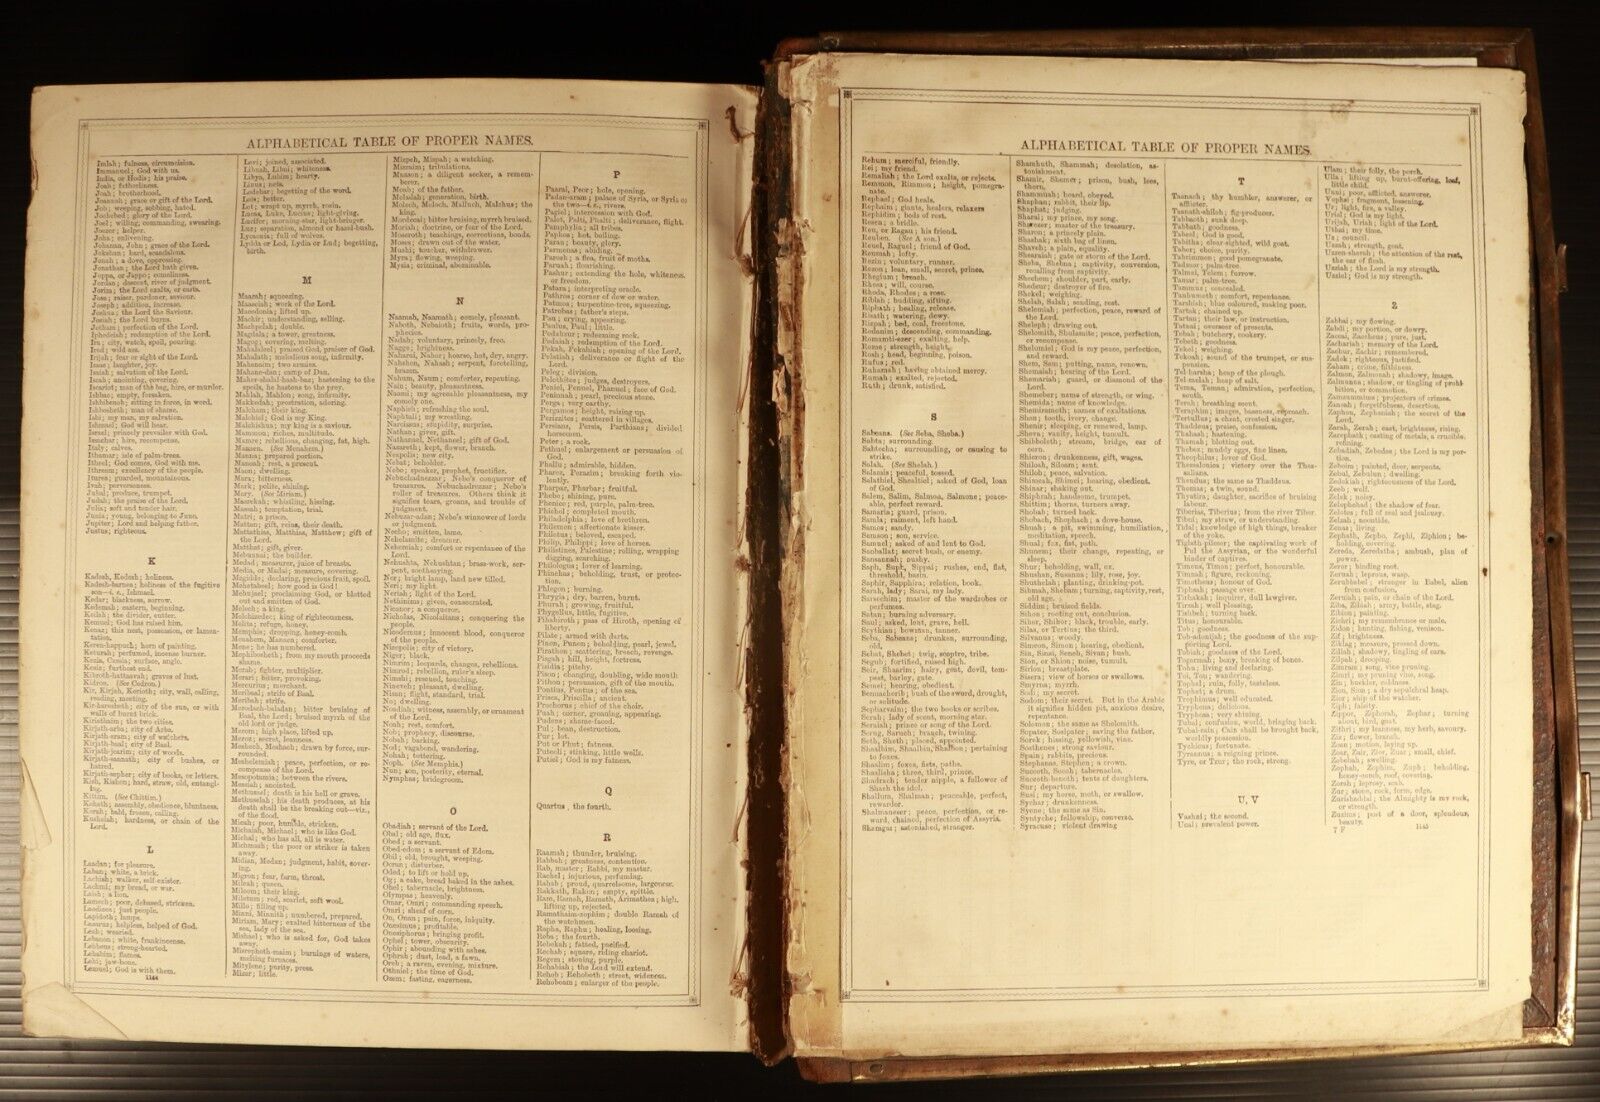 ALPHABETICAL TABLE OF PROPER NAMES.
Imlah; fulness, circumcision.
Immanuel; God with us.
India, or Hodis; his praise.
Joah; fatherliness.
Joah; brotherhood.
Joannah; grace or gift of the Lord.
Job; weeping, sobbing, hated.
Jochebed; glory of the Lord.
Joel; willing, commanding, swearing.
Joezer; helper.
John; enlivening.
Johanna, John; grace of the Lord.
Jokshan; hard, scandalous.
Jonah; a dove, oppressing.
Jonathan; the Lord hath given.
Joppa, or Japho; comeliness.
Jordan; descent, river of judgment.
Joseph; addition, increase.
Joshua; the Lord the Saviour.
Josiah; the Lord burns.
Jotham; perfection of the Lord.
Ira; city, watch, spoil, pouring.
Irad; wild ass.
Irijah; fear or sight of the Lord.
Isaac; laughter, joy.
Isaiah; salvation of the Lord.
Iscah; anointing, covering.
Ishbosheth; man of shame.
Ishmael; God will hear.
Italy; calves.
Ithamar; isle of palm-trees.
Ithiel; God comes, God with me.
Ithream; excellency of the people.
Iturea; guarded, mountainous.
Ivah; perverseness.
Jubal; produce, trumpet.
Judah; the praise of the Lord.
Julia; soft and tender hair.
Junia; young, belonging to Juno.
Jupiter; Lord and helping father.
Justus; righteous.
K
Kadesh, Kedesh; holiness.
Kadesh-barnea; holiness of the fugitive
son—i. e., Ishmael.
Kedar; blackness, sorrow.
Kedemah; eastern, beginning.
Kemuel; God has raised him.
Kenaz; this nest, possession, or lamen-
tation.
Keren-happuch; horn of painting.
Keturah; perfumed, incense burner.
Kezia, Cassia; surface, angle.
Keziz; furthest end.
Kibroth-hattaavah; graves of lust.
Kidron. (See Cedron.)
Kir, Kirjah, Kerioth; city, wall, calling,
reading, meeting.
Kir-haresheth; city of the sun, or with
walls of burnt brick.
Kiriathaim; the two cities.
Kirjath-arba; city of Arba.
Kirjath-baal; city of Baal.
Kirjath-jearim; city of woods.
Kirjath-sannath; city of bushes, or
hatred.
Kirjath-sepher; city of books, or letters.
Kittim. (See Chittim.)
Kohath; assembly, obedience, bluntness.
Korah; bald, frozen, calling.
Kushaiah; hardness, or chain of the
Lord.
L
Laadan; for pleasure.
Laban; white, a brick.
Lachish; walker, self-exister.
Lachmi; my bread, or war.
Laish; a lion.
Lamech; poor, debased, stricken.
Laodicea; just people.
Lapidoth; lamps.
Lazarus; helpless, helped of God.
Leah; wearied.
Lebanon; white, frankincense.
Lebbeus; strong-hearted.
Lehabim; flames.
Lehi; jaw-bone.
Lemuel; God is with them.
1144
Levi; joined, associated.
Libnah, Libni; whiteness.
Libya, Lubim; hearty.
Linus; nets.
Lodebar; begetting of the word.
Lois; better.
Lot; wrapt up, myrrh, rosin.
Lucas, Luke, Lucius; light-giving.
Lucifer; morning-star, light-bringer.
Luz; separation, almond or hazel-bush.
Lycaonia; full of wolves.
Lydda or Lod, Lydia or Lud; begetting,
birth.
M
Maarah; squeezing.
Maaseiah; work of the Lord.
Macedonia; lifted up.
Machir; understanding, selling.
Machpelah; double.
Magdala; a tower, greatness.
Magog; covering, melting.
Mahalaleel; praised God, praiser of God.
Mahalath; melodious song, infirmity.
Mahanaim; two armies.
Mahane-dan; camp of Dan.
Maher-shalal-hash-baz; hastening to the
spoils, he hastens to the prey.
Mahlah, Mahlon; song, infirmity.
Makkedah; prostration, adoring.
Malcham; their king.
Malchiel; God is my King.
Malchishua; my king is a saviour.
Mammon; riches, multitude.
Mamre; rebellious, changing, fat, high.
Manaen. (See Menahem.)
Manna; prepared portion.
Manoah; rest, a present.
Maon; dwelling.
Mara; bitterness.
Mark; polite, shining.
Mary. (See Miriam.)
Masrekah; whistling, hissing.
Massah; temptation, trial.
Matri; a prison.
Mattan; gift, reins, their death.
Mattathias, Matthias, Matthew; gift of
the Lord.
Matthat; gift, giver.
Mebunnai; the builder.
Medad; measurer, juice of breasts.
Media, or Madai; measure, covering.
Megiddo; declaring, precious fruit, spoil.
Mehetabel; how good is God!
Mehujael; proclaiming God, or blotted
out and smitten of God.
Melech; a king.
Melchizedec; king of righteousness.
Melita; refuge, honey.
Memphis; dropping, honey-comb.
Menahem, Manaen; comforter.
Mene; he has numbered.
Mephibosheth; from my mouth proceeds
shame.
Merab; fighter, multiplier.
Merari; bitter, provoking.
Mercurius; merchant.
Meribaal; strife of Baal.
Meribah; strife.
Merodach-baladan; bitter bruising of
Baal, the Lord; bruised myrrh of the
old lord or judge.
Merom; high place, lifted up.
Meroz; secret, leanness.
Meshech, Mesech; drawn by force, sur-
rounded.
Meshelemiah; peace, perfection, or re-
compense of the Lord.
Mesopotamia; between the rivers.
Messiah; anointed.
Methusael; death is his hell or grave.
Methuselah; his death produces, at his
death shall be the breaking out—viz.,
of the flood.
Micah; poor, humble, stricken.
Michaiah, Michael; who is like God.
Michal; who has all, all is water.
Michmash; the poor or striker is taken
away.
Midian, Medan; judgment, habit, cover-
ing.
Migron; fear, farm, throat.
Milcah; queen.
Milcom; their king.
Miletum; red, scarlet, soft wool.
Millo; filling up.
Minni, Minnith; numbered, prepared.
Miriam, Mary; exalted bitterness of the
sea, lady of the sea.
Mishael; who is asked for, God takes
away.
Misrephoth-maim; burnings of waters,
melting furnaces.
Mitylene; purity, press.
Mizar; little.
Mizpeh, Mispah; a watching.
Mizraim; tribulations.
Mnason; a diligent seeker, a remem-
berer.
Moab; of the father.
Moladah; generation, birth.
Molech, Moloch, Malluch, Malchus; the
king.
Mordecai; bitter bruising, myrrh bruised.
Moriah; doctrine, or fear of the Lord.
Moseroth; teachings, corrections, bonds.
Moses; drawn out of the water.
Mushi; toucher, withdrawer.
Myra; flowing, weeping.
Mysia; criminal, abominable.
N
Naamah, Naamath; comely, pleasant.
Naboth, Nebaioth; fruits, words, pro-
phecies.
Nadab; voluntary, princely, free.
Nagge; brightness.
Naharai, Nahor; hoarse, hot, dry, angry.
Nahshon, Nahash; serpent, foretelling,
brazen.
Nahum, Naum; comforter, repenting.
Nain; beauty, pleasantness.
Naomi; my agreeable pleasantness, my
comely one.
Naphish; refreshing the soul.
Naphtali; my wrestling.
Narcissus; stupidity, surprise.
Nathan; giver, gift.
Nathanael, Nethaneel; gift of God.
Nazareth; kept, flower, branch.
Neapolis; new city.
Nebat; beholder.
Nebo; speaker, prophet, fructifier.
Nebuchadnezzar; Nebo's conqueror of
treasures. Nebuchadrezzar; Nebo's
roller of treasures. Others think it
signifies tears, groans, and trouble of
judgment.
Nebuzar-adan; Nebo's winnower of lords
or judgment.
Necho; smitten, lame.
Nehelamite; dreamer.
Nehemiah; comfort or repentance of the
Lord.
Nehushta, Nehushtan; brass-work, ser-
pent, soothsaying.
Ner; bright lamp, land new tilled.
Neri; my light.
Neriah; light of the Lord.
Nethinims; given, consecrated.
Nicanor; a conqueror.
Nicholas, Nicolaitans; conquering the
people.
Nicodemus; innocent blood, conqueror
of the people.
Nicopolis; city of victory.
Niger; black.
Nimrim; leopards, changes, rebellions.
Nimrod; rebellion, ruler's sleep.
Nimshi; rescued, touching.
Nineveh; pleasant, dwelling.
Nisan; flight, standard, trial.
No; dwelling.
Noadiah; witness, assembly, or ornament
of the Lord.
Noah; rest, comfort.
Nob; prophecy, discourse.
Nobah; barking.
Nod; vagabond, wandering.
Nodab; tottering.
Noph. (See Memphis.)
Nun; son, posterity, eternal.
Nymphas; bridegroom.
O
Obadiah; servant of the Lord.
Obal; old age, flux.
Obed; a servant.
Obed-edom; a servant of Edom.
Obil; old, brought, weeping.
Ocran; disturber.
Oded; to lift or hold up.
Og; a cake, bread baked in the ashes.
Ohel; tabernacle, brightness.
Olympas; heavenly.
Omar, Omri; commanding speech.
Omri; sheaf of corn.
On, Onan; pain, force, iniquity.
Onesimus; profitable.
Onesiphorus; bringing profit.
Ophel; tower, obscurity.
Ophir; abounding with ashes.
Ophrah; dust, lead, a fawn.
Oreb; a raven, evening, mixture.
Othniel; the time of God.
Ozem; fasting, eagerness.
P
Paarai, Peor; hole, opening.
Padan-aram; palaces of Syria, or Syria of
the two—i.e., rivers.
Pagiel; intercession with God.
Palet, Palti, Phalti; deliverance, flight.
Pamphylia; all tribes.
Paphos; hot, boiling.
Paran; beauty, glory.
Parmenas; abiding.
Parosh; a flea, fruit of moths.
Paruah; flourishing.
Pashur; extending the hole, whiteness,
or freedom.
Patara; interpreting oracle.
Pathros; corner of dew or water.
Patmos; turpentine-tree, squeezing.
Patrobas; father's steps.
Pau; crying, appearing.
Paulus, Paul; little.
Pedahzur; redeeming rock.
Pedaiah; redemption of the Lord.
Pekah, Pekahiah; opening of the Lord.
Pelatiah; deliverance or flight of the
Lord.
Peleg; division.
Pelethites; judges, destroyers.
Peniel, Penuel, Phanuel; face of God.
Peninnah; pearl, precious stone.
Perga; very earthy.
Pergamos; height, raising up.
Perizzites; scattered in villages.
Persians, Persis, Parthians; divided
horsemen.
Peter; a rock.
Pethuel; enlargement or persuasion of
God.
Phallu; admirable, hidden.
Pharez, Perazim; breaking forth vio-
lently.
Pharpar, Pharbar; fruitful.
Phebe; shining, pure.
Phenice; red, purple, palm-tree.
Phichol; completed mouth.
Philadelphia; love of brethren.
Philemon; affectionate kisser.
Philetus; beloved, escaped.
Philip, Philippi; love of horses.
Philistines, Palestine; rolling, wrapping
digging, searching.
Philologus; lover of learning.
Phinehas; beholding, trust, or protec-
tion.
Phlegon; burning.
Phrygia; dry, barren, burnt.
Phurah; growing, fruitful.
Phygellus; little, fugitive.
Pihahiroth; pass of Hiroth, opening of
liberty.
Pilate; armed with darts.
Pinon, Punon; beholding, pearl, jewel.
Pirathon; scattering, breach, revenge.
Pisgah; hill, height, fortress.
Pisidia; pitchy.
Pison; changing, doubling, wide mouth
Pithon; persuasion, gift of the mouth.
Pontius, Pontus; of the sea.
Prisca, Priscilla; ancient.
Prochorus; chief of the choir.
Puah; corner, groaning, appearing.
Pudens; shame-faced.
Pul; bean, destruction.
Pur; lot.
Put or Phut; fatness.
Puteoli; stinking, little wells.
Putiel; God is my fatness.
Q
Quartus, the fourth.
R
Raamah; thunder, bruising.
Rabbah; greatness, contention.
Rab, master; Rabbi, my master.
Rachel; injurious, perfuming.
Rahab; proud, quarrelsome, largeness.
Rakkath, Rakon; empty, spittle.
Ram, Ramah, Ramath, Arimathea; high,
lifting up, rejected.
Ramathaim-zophim; double Ramah of
the watchmen.
Rapha, Raphu; healing, loosing.
Reba; the fourth.
Rebekah; fatted, pacified.
Rechab; square, riding chariot.
Regem; stoning, purple.
Rehabiah; the Lord will extend.
Rehob; Rehoboth; street, wideness.
Rehoboam; enlarger of the people.
ALPHABETICAL TABLE OF PROPER NAMES.
Rehum; merciful, friendly.
Rei; my friend.
Remaliah; the Lord exalts, or rejects.
Remmon, Rimmon; height, pomegra-
nate.
Rephael; God heals.
Rephaim; giants, healers, relaxers
Rephidim; beds of rest.
Resen; a bridle.
Reu, or Ragau; his friend.
Reuben. (See A son.)
Reuel, Raguel; friend of God.
Reumah; lofty.
Rezin; voluntary, runner.
Rezon; lean, small, secret, prince.
Rhegium; breach.
Rhesa; will, course.
Rhoda, Rhodes; a rose.
Riblah; budding, sifting.
Riphath; healing, release.
Rizpah; bed, coal, freestone.
Rodanim; descending, commanding.
Romamti-ezer; exalting, help.
Rome; strength, height.
Rosh; head, beginning, poison.
Rufus; red.
Ruhamah; having obtained mercy.
Rumah; exalted, rejected.
Ruth; drunk, satisfied.
S
Sabeans. (See Seba, Sheba.)
Sabta; surrounding.
Sabtecha; surrounding, or causing to
strike.
Salah. (See Shelah.)
Salamis; peaceful, tossed.
Salathiel, Shealtiel; asked of God, loan
of God.
Salem, Salim, Salmon, Salmone; peace-
able, perfect reward.
Samaria; guard, prison.
Samla; raiment, left hand.
Samos; sandy.
Samson; son, service.
Samuel; asked of and lent to God.
Sanballat; secret bush, or enemy.
Sansannah; bushy.
Saph, Suph, Sippai; rushes, end, flat,
threshold, basin.
Saphir, Sapphira; relation, book.
Sarah, lady; Sarai, my lady.
Sarsechim; master of the wardrobes or
perfumes.
Satan; burning adversary.
Saul; asked, lent, grave, hell.
Scythian; bowman, tanner.
Seba, Sabeans; drunken, surrounding,
old.
Sebat, Shebet; twig, sceptre, tribe.
Segub; fortified, raised high.
Seir, Shaarim; hairy, goat, devil, tem-
pest, barley, gate.
Semei; hearing, obedient.
Sennacherib; bush of the sword, drought,
or solitude.
Sepharvaim; the two books or scribes.
Serah; lady of scent, morning star.
Seraiah; prince or song of the Lord.
Serug, Saruch; branch, twining.
Seth, Sheth; placed, appointed.
Shaalbim, Shaalbin, Shalbon; pertaining
to foxes.
Shaalim; foxes, fists, paths.
Shalisha; three, third, prince.
Shadrach; tender nipple, a follower of
Shach the idol.
Shallum, Shalman; peaceable, perfect,
rewarder.
Shalmaneser; peace, perfection, or re-
ward, chained, perfection of Assyria.
Shamgar; astonished, stranger.
Shamhuth, Shammah; desolation, as-
tonishment.
Shamir, Shemer; prison, bush, lees,
thorn.
Shammuah; heard, obeyed.
Shaphan; rabbit, their lip.
Shaphat; judging.
Sharai; my prince, my song.
Sharezer; master of the treasury.
Sharon; a princely plain.
Shashak; sixth bag of linen.
Shaveh; a plain, equality.
Sheariah; gate or storm of the Lord.
Sheba, Shebna; captivity, conversion,
recalling from captivity.
Shechem; shoulder, part, early.
Shedeur; destroyer of fire.
Shekel; weighing.
Shelah, Salah; sending, rest.
Shelemiah; perfection, peace, reward of
the Lord.
Sheleph; drawing out.
Shelomith, Shulamite; peace, perfection,
or recompense.
Shelumiel; God is my peace, perfection,
and reward.
Shem, Sam; putting, name, renown.
Shemaiah; hearing the Lord.
Shemariah; guard, or diamond of the
Lord.
Shemeber; name of strength, or wing.
Shemida; name of knowledge.
Shemiramoth; names of exaltations.
Shen; tooth, ivory, change.
Shenir; sleeping, or renewed, lamp.
Sheva; vanity, height, tumult.
Shibboleth; stream, bridge, ear of
corn.
Shicron; drunkenness, gift, wages.
Shiloah, Siloam; sent.
Shiloh; peace, salvation.
Shimeah, Shimei; hearing, obedient.
Shinar; shaking out.
Shiphrah; handsome, trumpet.
Shittim; thorns, turners away.
Shobab; turned back.
Shobach, Shophach; a dove-house.
Shuah; a pit, swimming, humiliation,
meditation, speech.
Shual; fox, fist, path.
Shunem; their change, repeating, or
sleep.
Shur; beholding, wall, ox.
Shushan, Susanna; lily, rose, joy.
Shuthelah; planting, drinking-pot.
Sibmah, Shebam; turning, captivity, rest,
old age.
Siddim; bruised fields.
Sihon; rooting out, conclusion.
Sihor, Shihor; black, trouble, early.
Silas, or Tertius; the third.
Silvanus; woody.
Simeon, Simon; hearing, obedient.
Sin, Sinai, Seneh, Sivan; bush.
Sion, or Shion; noise, tumult.
Sirion; breastplate.
Sisera; view of horses or swallows.
Smyrna; myrrh.
Sodi; my secret.
Sodom; their secret. But in the Arabic
it signifies hidden pit, anxious desire,
repentance.
Solomon; the same as Shelomith.
Sopater, Sosipater; saving the father.
Sorek; hissing, yellowish, vine.
Sosthenes; strong saviour.
Spain; rabbits, precious.
Stephanas, Stephen; a crown.
Succoth, Sucoh; tabernacles.
Succoth-benoth; tents of daughters.
Sur; departure.
Susi; my horse, moth, or swallow.
Sychar; drunkenness.
Syene; the same as Sin.
Syntyche; fellowship, converse.
Syracuse; violent drawing
T
Taanach; thy humbler, answerer, or
afflicter.
Taanath-shiloh; fig-producer.
Tabbaoth; sunk deep.
Tabbath; goodness.
Tabeel; God is good.
Tabitha; clear-sighted, wild goat.
Tabor; choice, purity.
Tabrimmon; good pomegranate.
Tadmor; palm-tree.
Talmai, Telem; furrow.
Tamar; palm-tree.
Tammuz; concealed.
Tanhumeth; comfort, repentance.
Tarshish; blue coloured, making poor.
Tartak; chained up.
Tartan; their law, or instruction.
Tatnai; overseer of presents.
Tebah; butchery, cookery.
Tebeth; goodness.
Tekel; weighing.
Tekoah; sound of the trumpet, or sus-
pension.
Tel-harsa; heap of the plough.
Tel-melah; heap of salt.
Tema, Teman; admiration, perfection,
south.
Terah; breathing scent.
Teraphim; images, baseness, reproach.
Tertullus; a cheat, crested singer.
Thaddeus; praise, confession.
Thahash; hastening.
Thamah; blotting out.
Thebez; muddy eggs, fine linen.
Theophilus; lover of God.
Thessalonica; victory over the Thes-
salians.
Theudas; the same as Thaddeus.
Thomas; a twin, sound.
Thyatira; daughter, sacrifice of bruising
labour.
Tiberias, Tiberius; from the river Tiber.
Tibni; my straw, or understanding.
Tidal; knowledge of high things, breaker
of the yoke.
Tiglath-pileser; the captivating work of
Pul the Assyrian, or the wonderful
binder of captives.
Timeus, Timon; perfect, honourable.
Timnah; figure, reckoning.
Timotheus; honour of God.
Tiphsah; passage over.
Tirhakah; inquirer, dull lawgiver.
Tirzah; well pleasing.
Tishbeh; turning back.
Titus; honourable.
Tob; goodness.
Tob-adonijah; the goodness of the sup-
porting Lord.
Tobiah; goodness of the Lord.
Togarmah; bony, breaking of bones.
Tohu; living and declaring.
Toi, Tou; wandering.
Tophel; ruin, folly, tasteless.
Tophet; a drum.
Trophimus; well educated.
Tryphena; delicious.
Tryphosa; very shining.
Tubal; confusion, world, bringing back.
Tubal-cain; Cain shall be brought back,
worldly possession.
Tychicus; fortunate.
Tyrannus; a reigning prince.
Tyre, or Tzur; the rock, strong.
U, V
Vashni; the second.
Uzai; prevalent power.
Ulam; their folly, the porch.
Ulla; lifting up, burnt-offering, leaf,
little child.
Unni; poor, afflicted, answerer.
Vophsi; fragment, lessening.
Ur; light, fire, a valley.
Uriel; God is my light.
Urijah, Uriah; light of the Lord.
Uthai; my time.
Uz; council.
Uzzah; strength, goat.
Uzzen-sherah; the attention of the rest,
the ear of flesh.
Uzziah; the Lord is my strength.
Uzziel; God is my strength.
Z
Zabbai; my flowing.
Zabdi; my portion, or dowry.
Zaccai, Zaccheus; pure, just.
Zachariah; memory of the Lord.
Zacchur, Zachir; remembered.
Zadok; righteous, justified.
Zaham; crime, filthiness.
Zalmon, Zalmonah; shadowy, image.
Zalmunna; shadow, or tingling of prohi-
bition, or commotion.
Zamzummims; projectors of crimes.
Zanoah; forgetfulness, desertion.
Zaphon, Zephaniah; the secret of the
Lord.
Zarah, Zerah; east, brightness, rising.
Zarephath; casting of metals, a crucible,
refining.
Zebadiah, Zebedee; the Lord is my por-
tion.
Zeboim; painted, deer, serpents.
Zebul, Zebulun; dwelling.
Zedekiah; righteousness of the Lord.
Zeeb; wolf.
Zelek; noisy.
Zelophehad; the shadow of fear.
Zelotes; full of zeal and jealousy.
Zelzah; noontide.
Zenas; living.
Zephath, Zepho, Zephi, Ziphion; be-
holding, covering.
Zereda, Zeredatha; ambush, plan of
power.
Zeror; binding root.
Zeruah; leprous, wasp.
Zerubbabel; stranger in Babel, alien
from confusion.
Zeruiah; pain, or chain of the Lord.
Ziba, Zibiah; army, battle, stag.
Zibeon; painting.
Zichri; my remembrance or male.
Zidon; hunting, fishing, venison.
Zif; brightness.
Ziklag; measure, pressed down.
Zillah; shadowy, tingling of ears.
Zilpah; drooping.
Zimran; song, vine pruning.
Zimri; my pruning vine, song.
Zin; buckler, coldness.
Zion, Sion; a dry sepulchral heap.
Zior; ship of the watcher.
Ziph; falsity.
Zippor, Zipporah, Zophar; turning
about, bird, goat.
Zithri; my leanness, my herb, savoury.
Ziz; flower, branch.
Zoan; motion, laying up.
Zoar, Zair, Zior, Zuar; small, chief.
Zobebah; swelling.
Zophah, Zophim, Zuph; beholding,
honey-comb, roof, covering.
Zorah; leprosy, scab.
Zur; stone, rock, form, edge.
Zurishaddai; the Almighty is my rock,
or strength.
Zuzims; post of a door, splendour,
beauty.
7 F
1145